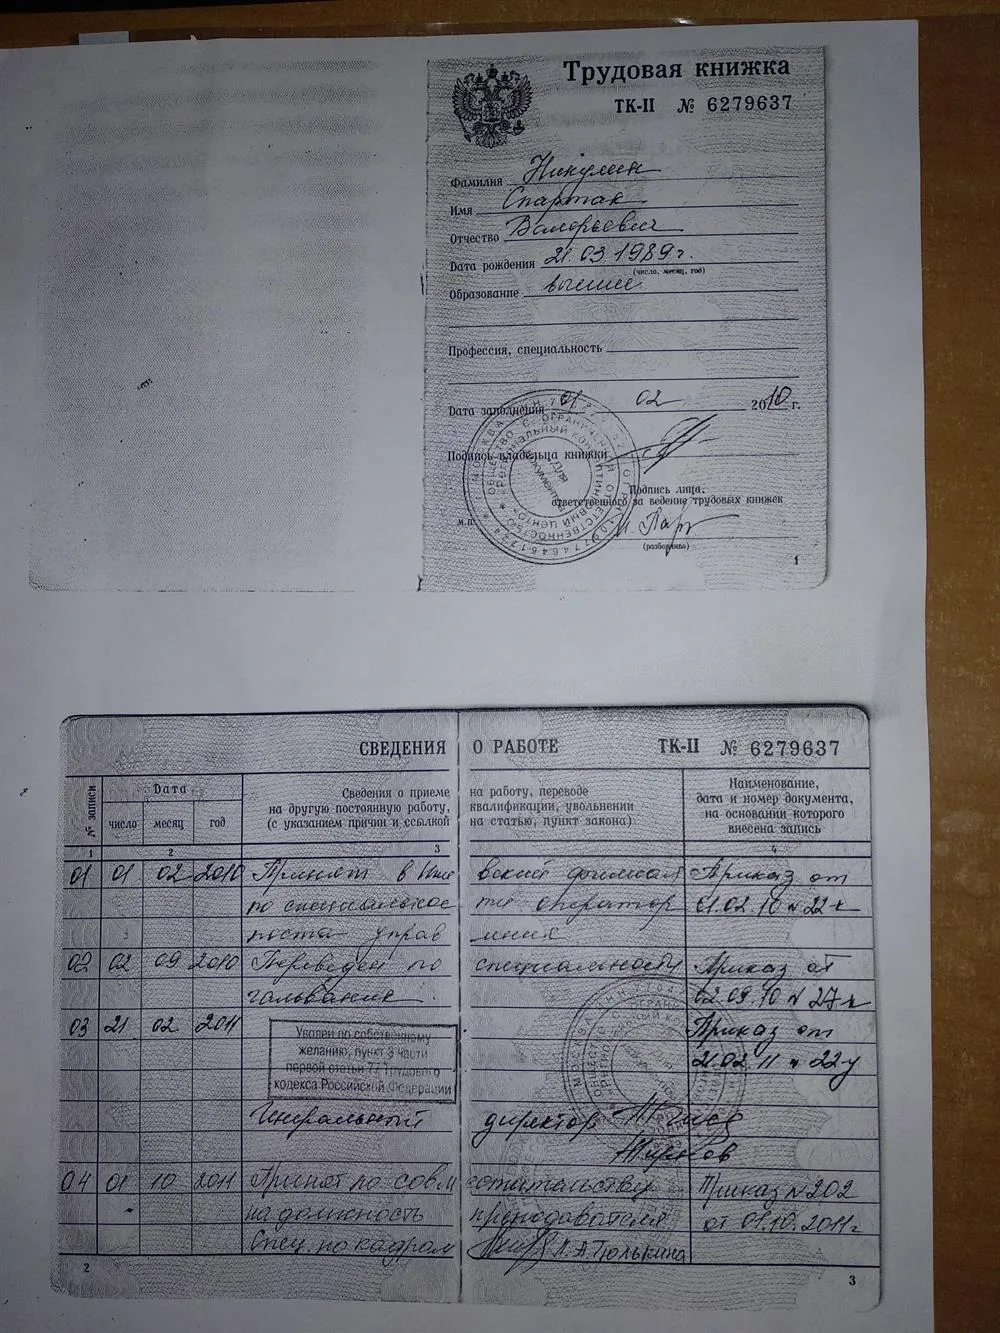 Трудовая книжка
ТК-II № 6279637
Фамилия Никулин
Имя Спартак
Отчество Валерьевич
Дата рождения 21.03.1989г.
(число, месяц, год)
Образование высшее
Профессия, специальность
Дата заполнения 01 02 2010 г.
Подпись владельца книжки
Подпись лица,
ответственного за ведение трудовых книжек
М.П.
(разборчиво)
1
СВЕДЕНИЯ О РАБОТЕ ТК-II № 6279637
№ записи
Дата
число месяц год
Сведения о приеме на работу, переводе
на другую постоянную работу, квалификации, увольнении
(с указанием причин и ссылкой на статью, пункт закона)
Наименование,
дата и номер документа,
на основании которого
внесена запись
1 2 3 4
01 01 02 2010 Принят в Иже вский филиал Приказ от
по специальнос ти оператор 01.02.10 № 22-к
поста управ ления
02 02 09 2010 Переведен по специальности Приказ от
гальваник. 02.09.10 № 27-к
03 21 02 2011 Приказ от
Уволен по собственному
желанию, пункт 3 части 21.02.11 № 22-у
первой статьи 77 Трудового
кодекса Российской Федерации
Генеральный директор
Жирнов
04 01 10 2011 Принят по совм естительству Приказ №202
на должность преподавателя от 01.10.2011г
Спец. по кадрам Л.А.Тюлькина
2 3